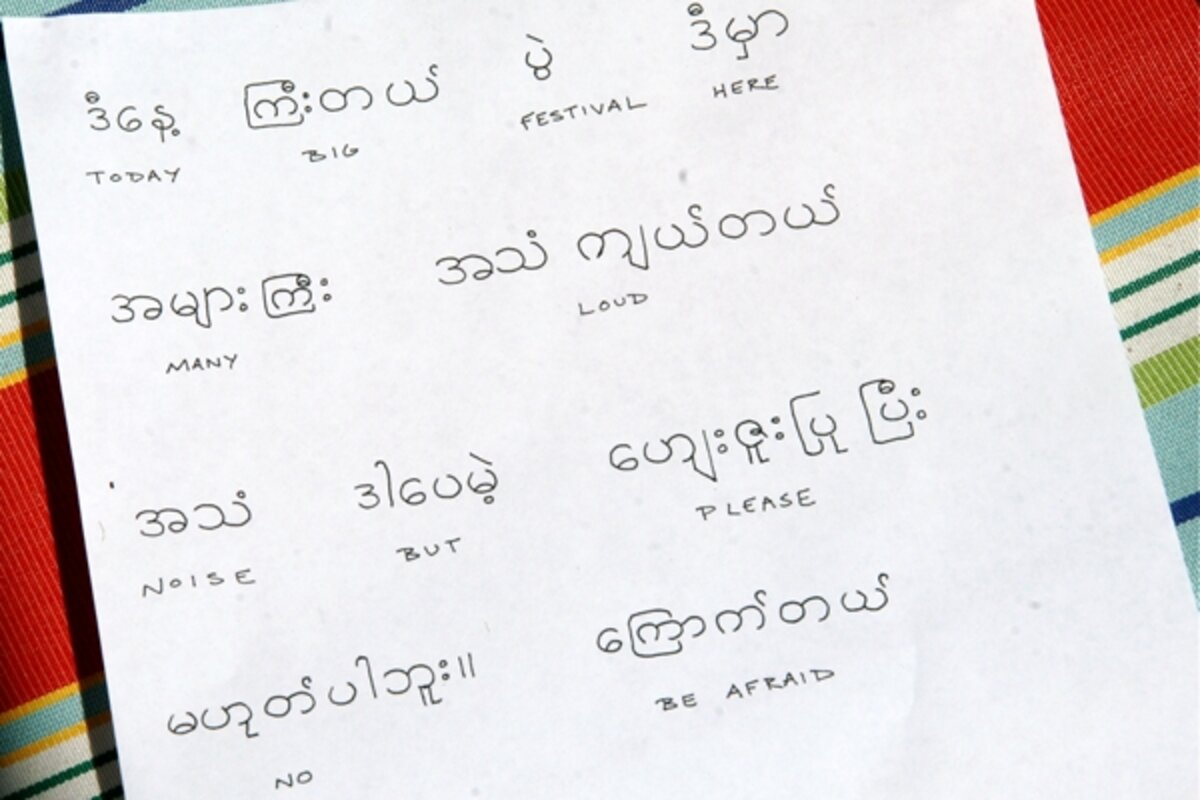 ဒီနေ့ ကြီးတယ် ပွဲ ဒီမှာ
TODAY BIG FESTIVAL HERE
အများကြီး အသံ ကျယ်တယ်
MANY LOUD
အသံ ဒါပေမဲ့ ကျေးဇူးပြု ပြီး
NOISE BUT PLEASE
မဟုတ်ပါဘူး။ ကြောက်တယ်
NO BE AFRAID